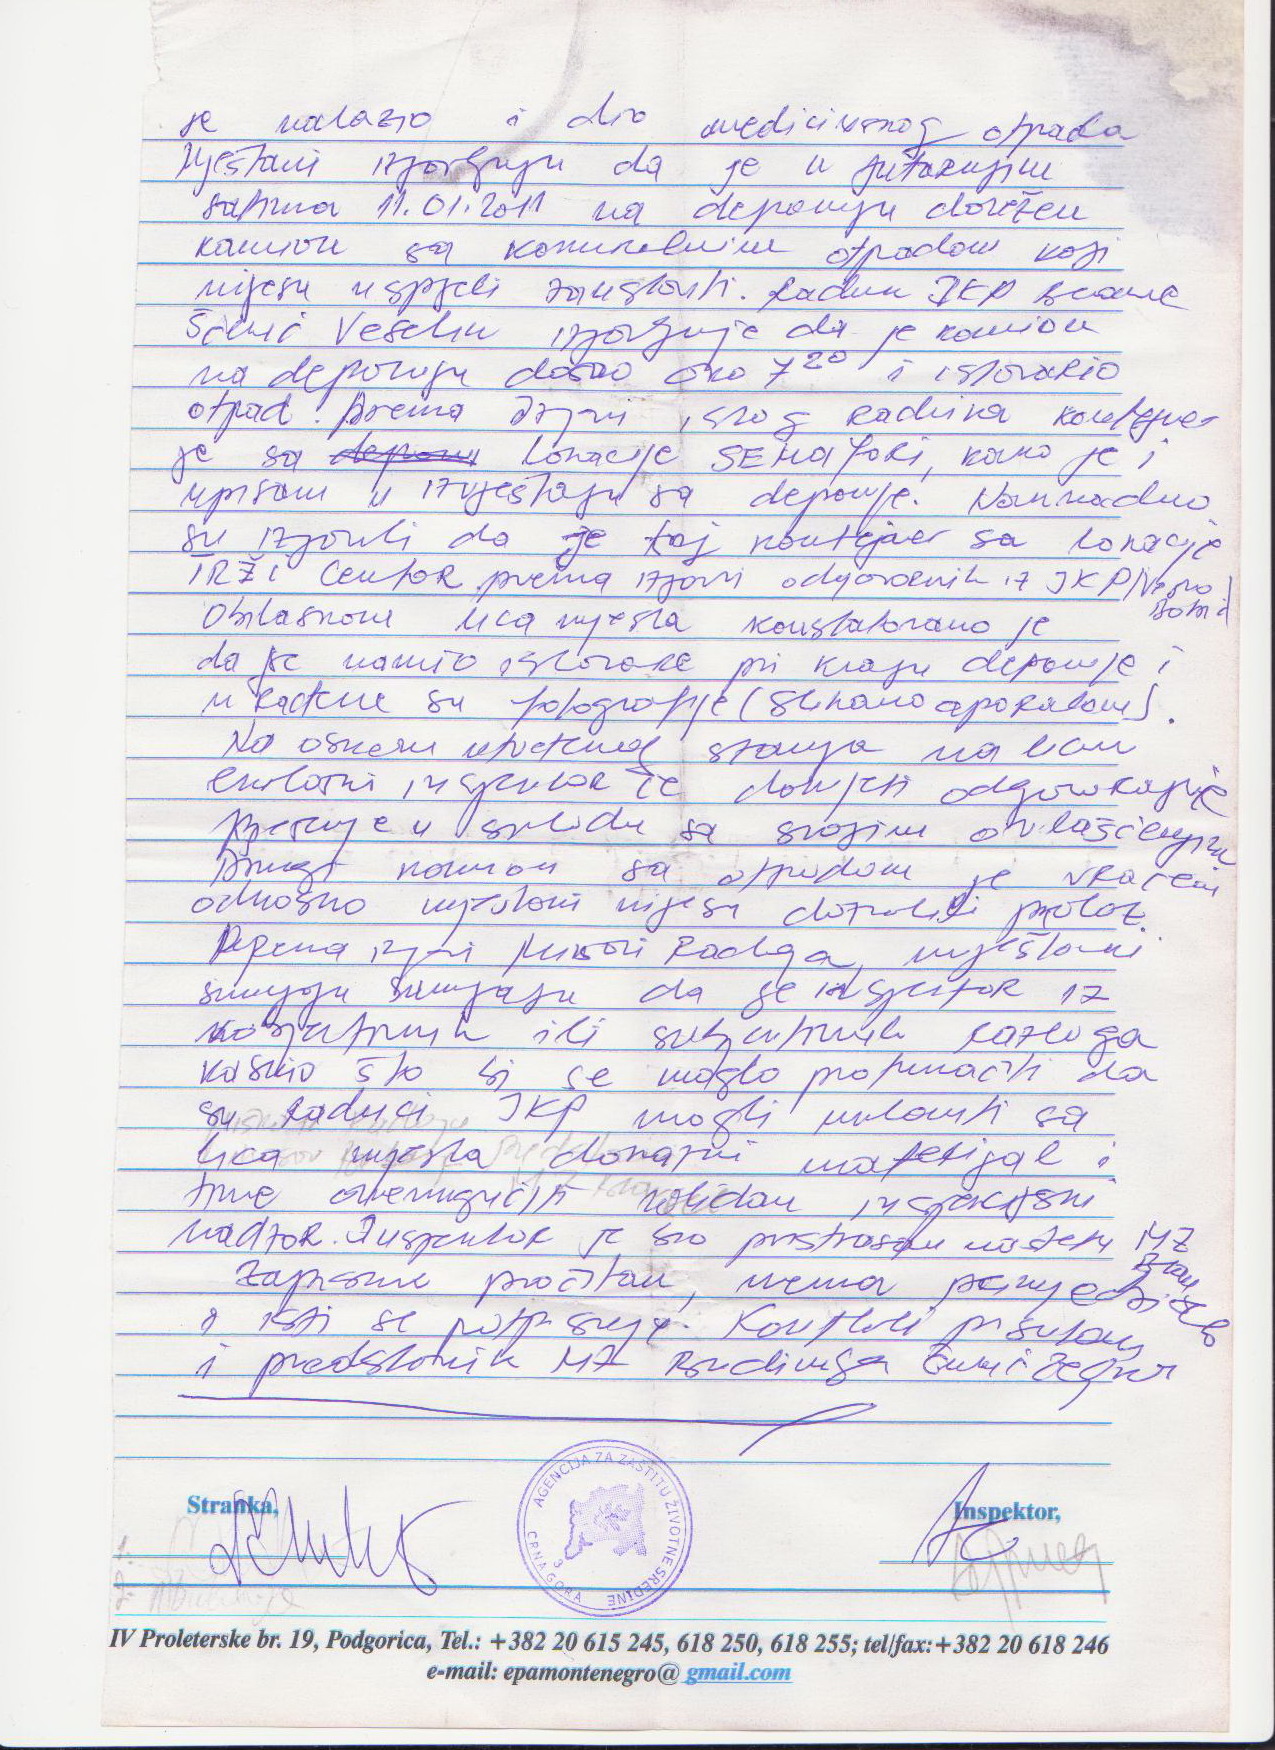 je nalazio i dio medicinskog otpada
Mještani izjavljuju da je u jutarnjim
satima 11.01.2011 na deponiju dovežen
kamion sa komunalnim otpadom koji
nijesu uspjeli zaustaviti. Radnik JKP Berane
Šćekić Veselin izjavljuje da je kamion
na deponiju došao oko 7 20 i istovario
otpad. Prema izjavi istog radnika kontejner
je sa lokacije SEMAFORI, kako je i
upisano u izvještaju sa deponije. Naknadno
su izjavili da je taj kontejner sa lokacije
TRŽI CENTAR prema izjavi odgovornih iz JKP
Obilaskom lica mjesta konstatovano je
da je kamion istovaren pri kraju deponije i
urađene su fotografije (slikano aparatom).
Na osnovu utvrđenog stanja na licu
ekološki inspektor će donijeti odgovarajuće
rješenje u skladu sa svojim ovlašćenjima
Drugi kamion sa otpadom je vraćen
odnosno mještani nijesu dozvolili prolaz.
Prema izjavi Radoja, mještani
sumnjaju da je inspektor iz
objektivnih ili subjektivnih razloga
kasnio što bi se moglo protumačiti da
su radnici JKP mogli ukloniti sa
lica mjesta dokazni materijal i
time onemogućiti validan inspekcijski
nadzor. Inspektor je bio pristrasan na štetu MZ
Zapisnik pročitan, nema primjedbi
i isti se potpisuje. Kontroli prisutan
i predstavnik MZ Budimlja
Stranka,
Inspektor,
1.
2.
AGENCIJA ZA ZAŠTITU ŽIVOTNE SREDINE
CRNA GORA
IV Proleterske br. 19, Podgorica, Tel.: +382 20 615 245, 618 250, 618 255; tel/fax:+382 20 618 246
e-mail: epamontenegro@ gmail.com